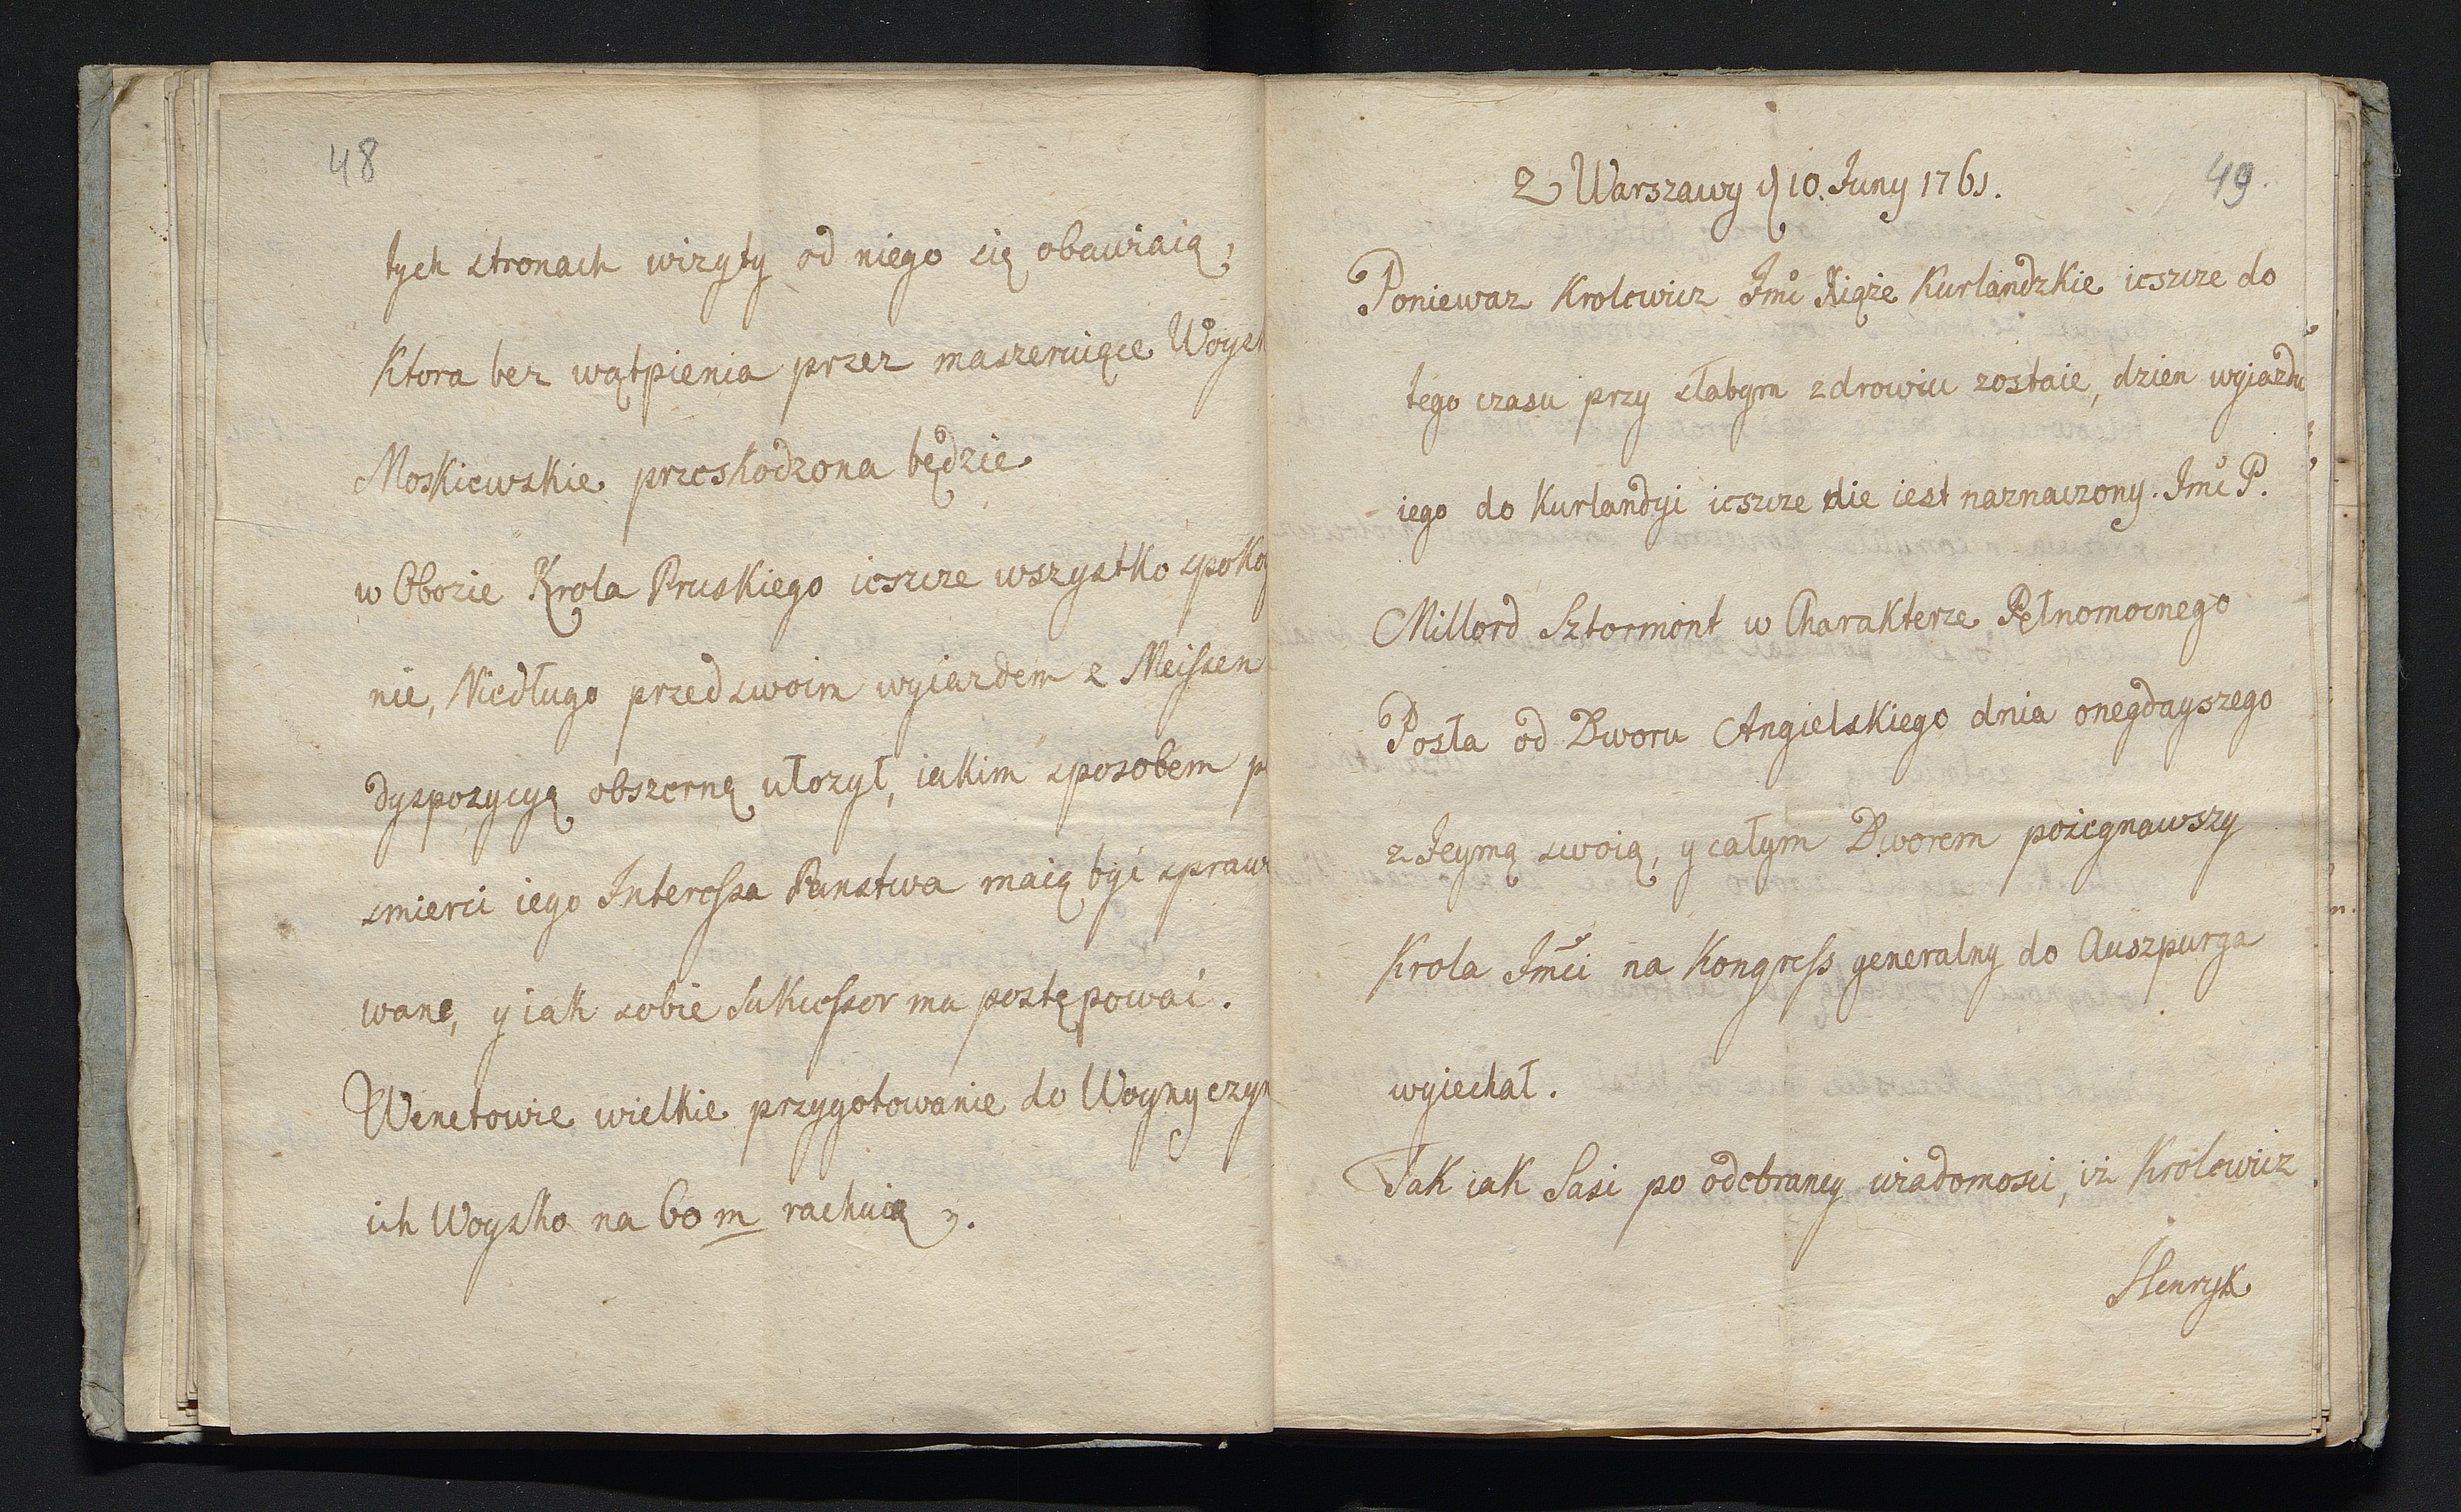 48
tych stronach wizyty od niego się obawiaią,
Ktora bez wątpienia przez maszeruiące Woysk
Moskiewskie przeskodzona będzie
w Obozie Krola Pruskiego ieszcze wszystko spokoy
nie, Niedługo przed swoim wyiazdem z Meissen
dyspozycyą obszerną ułozył, iakim sposobem p
smierci iego Interessa Panstwa maią być spraw
wane, y iak sobie Sukcessor ma postępować.
Wenetowie wielkie przygotowanie do Woyny czyn
ich Woysko na 60 m rachuią.
49.
Z Warszawy d 10. Juny 1761.
Poniewaz Krolewicz Jmć Xiąże Kurlandzkie ieszcze do
tego czasu przy słabym zdrowiu zostaie, dzien wyiazdu
iego do Kurlandyi ieszcze nie iest naznaczony. Jmć P.
Millord Sztormont w Charakterze Pełnomocnego
Posła od Dworu Angielskiego dnia onegdayszego
z Jeymą swoią, y całym Dworem pożegnawszy
Krola Jmći na Kongress generalny do Auszpurga
wyiechał.
Tak iak Sasi po odebraney wiadomosci, iz Krolewicz
Henryk